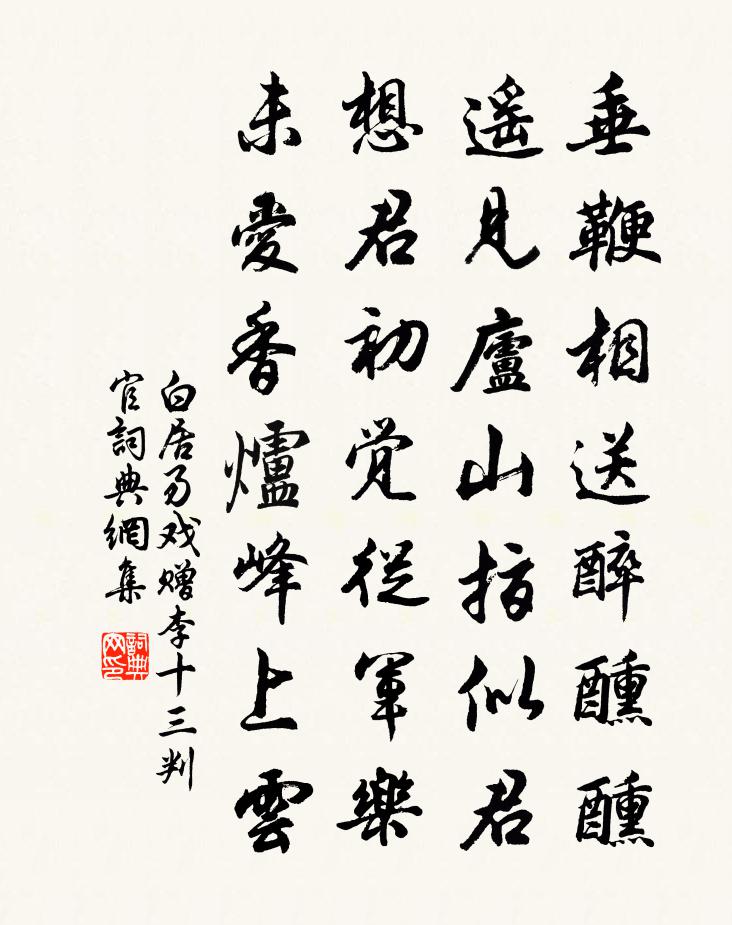 垂鞭相送醉醺醺
遥見廬山指似君
想君初覚從軍樂
未愛香爐峰上雲
白居易戏赠李十三判
官詞典網集
詞典網印